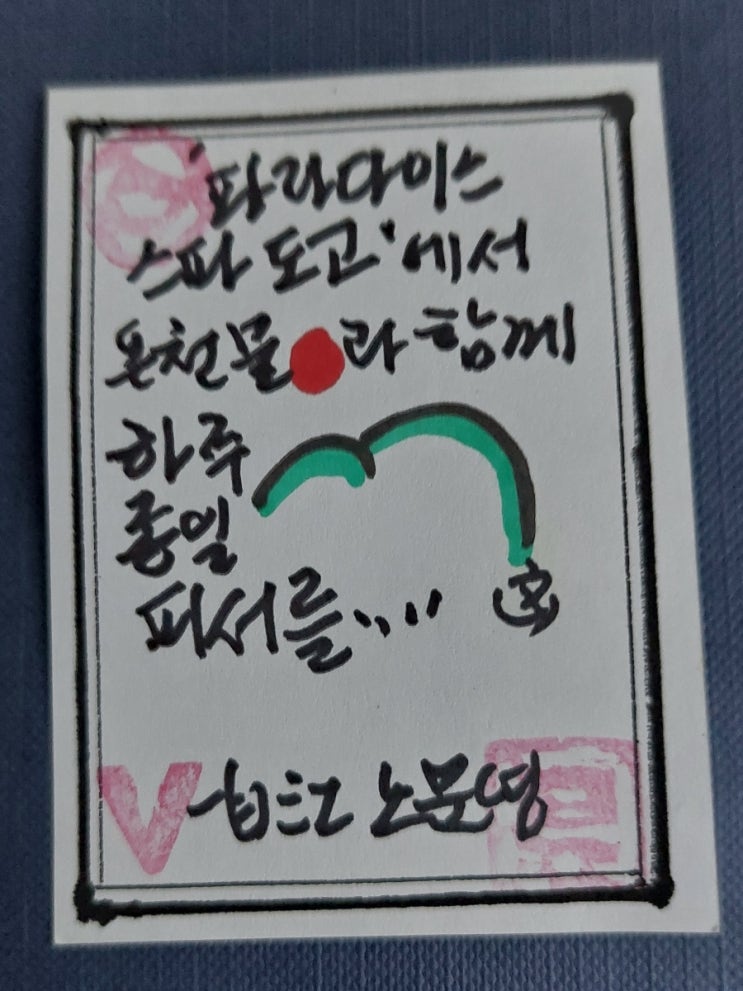 '파라다이스
스파 도고'에서
온천물 라 함께
하루
종일
피서를....
노문영